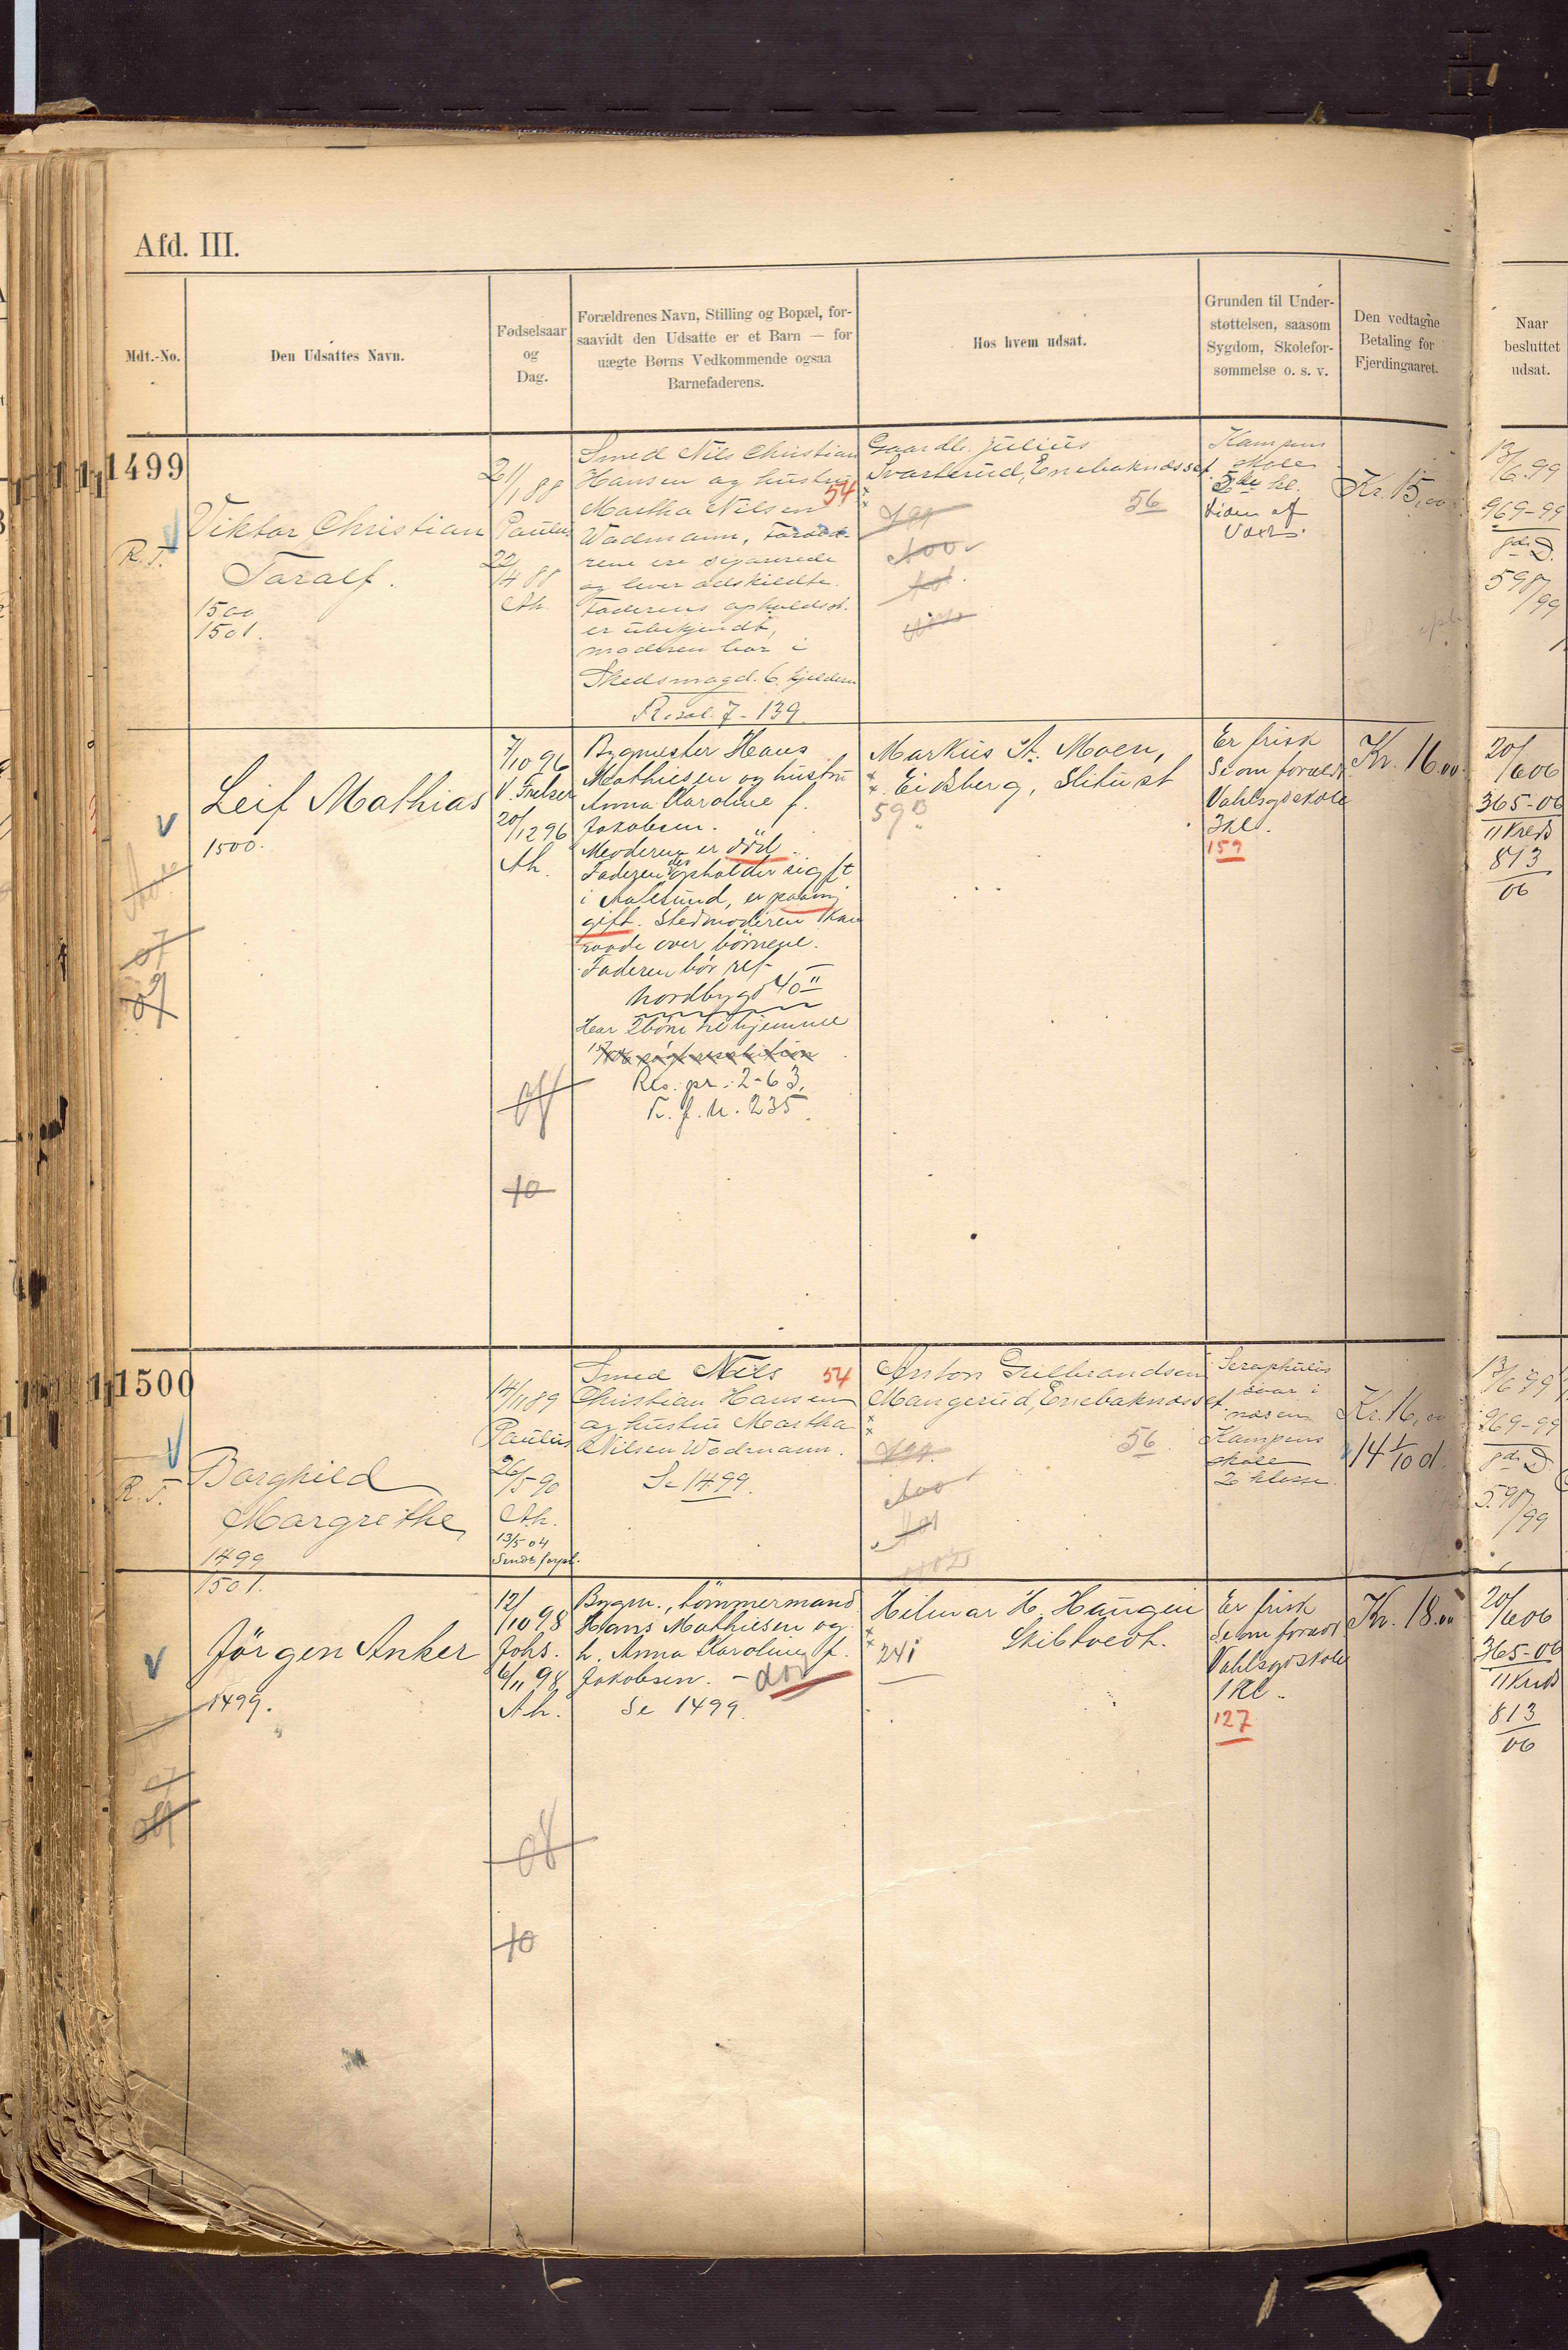 Afd. III.
Mdt.-No.
Den Udsattes Navn.
Fødselsaar
og
Dag.
Forældrenes Navn, Stilling og Bopæl, for-
saavidt den Udsatte er et Barn — for
uægte Børns Vedkommende ogsaa
Barnefaderens.
Hos hvem udsat.
Grunden til Under-
støttelsen, saasom
Sygdom, Skolefor-
sømmelse o. s. v.
Den vedtagne
Betaling for
Fjerdingaaret.
Naar
besluttet
udsat.
1499
R. T.
Viktor Christian
Toralf.
1500
1501.
21/1 88
Paulus
22/4 88
Ah.
Smed Nils Christian
Hansen og hustru
54
Martha Nilsen
Wadmann, Foræld-
rene ere separerede
og lever adskildte.
Faderens opholdsst.
er ubekjendt,
moderen bor i
Skedsmogd. 6. kjelderen
Resol. 7 - 139
Gaardb. Julius
Svarterud, Enebaknæsset.
56
Kampens
skole
5te kl.
Liden af
Vext.
Kr. 15,00
13/6 99
969-99
590/99
Leif Mathias
1500.
7/10 96
V. Frelser
20/12 96
Ah.
Bygmester Hans
Mathiesen og hustru
Anna Karoline f.
Jakobsen.
Moderen er död.
Faderen opholder sig ft
i Aalesund, er paany
gift. Stedmoderen kan
raade over börnene.
Faderen bör ref
Nordbygd 40 II
Har 2 börn hehjemme
Res. pr. 2-63.
F. f. n. 235.
08
10
Markus A. Moen,
Eidsberg, Slitust
59
Er frisk
Se om foræld
Vahlsgdskole
3 kl.
159
Kr. 16.00
20/6 06
365-06
11 Kreds
813
06
1500
R. T.
Borghild
Margrethe
1499
1501.
14/11 89
Paulus
26/5 90
Ah.
13/5 04
Smed Nils
54
Christian Hansen
og hustru Martha
Nilsen Wadmann.
Se 1499.
Anton Gulbrandsen
Mangerud, Enebaknæsset.
56
Seraphulis
saar i
næsen
Kampens
skole
2 klasse.
Kr. 16,00
14 1/10 d.
13/6 99
969-99
590/99
Jörgen Anker
1499.
12/10 98
Johs.
6/11 98
Ah.
Bygm., tömmermand
Hans Mathiesen og
h. Anna Karoline f.
Jakobsen. - död
Se 1499.
08
10
Hilmar H. Haugen
Skibtvedt.
241
Er frisk
Se om foræld
Vahlsgdskole
1 kl.
127
Kr. 18.00
20/6 06
365-06
11 Kreds
813
06